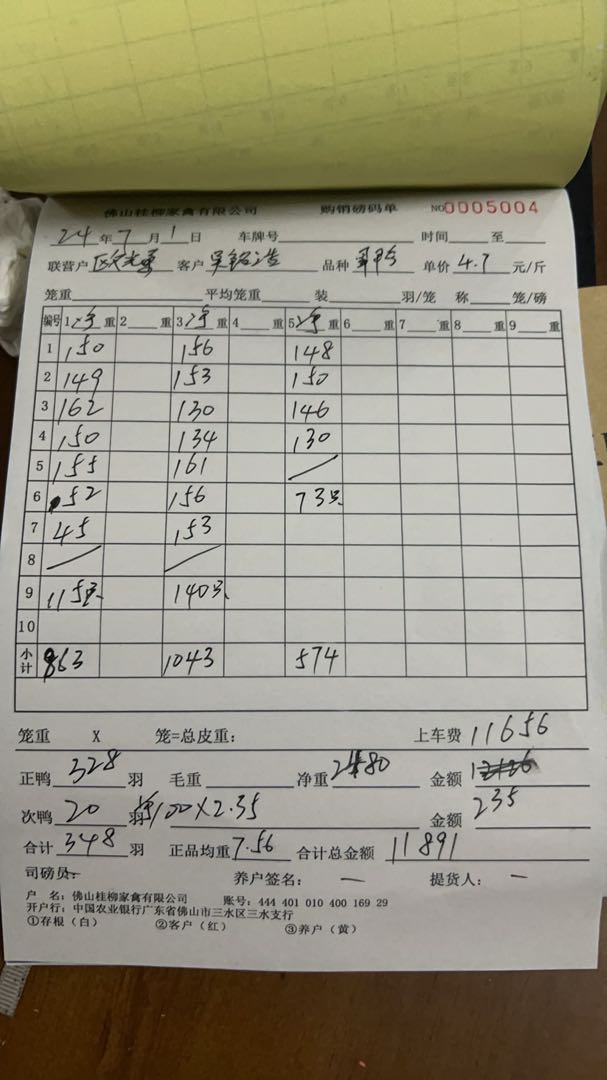 佛山桂柳家禽有限公司 购销磅码单 NO0005004
24年7月1日 车牌号 时间 至
联营户 客户 品种 单价4.7元/斤
笼重 平均笼重 装 羽/笼 称 笼/磅
编号 1净重 2 重 3净重 4 重 5净重 6 重 7 重 8 重 9 重
1 150 156 148
2 149 153 150
3 162 130 146
4 150 134 130
5 155 161
6 52 156 73只
7 45 153
8
9 115只 140只
10
小计 863 1043 574
笼重 X 笼=总皮重: 上车费 11656
正鸭 328 羽 毛重 净重 2480 金额
次鸭 20 羽 净100×2.35 金额 235
合计 348 羽 正品均重 7.56 合计总金额 11891
司磅员: 养户签名: — 提货人: —
户 名:佛山桂柳家禽有限公司 账号:444 401 010 400 169 29
开户行:中国农业银行广东省佛山市三水区三水支行
①存根(白) ②客户(红) ③养户(黄)